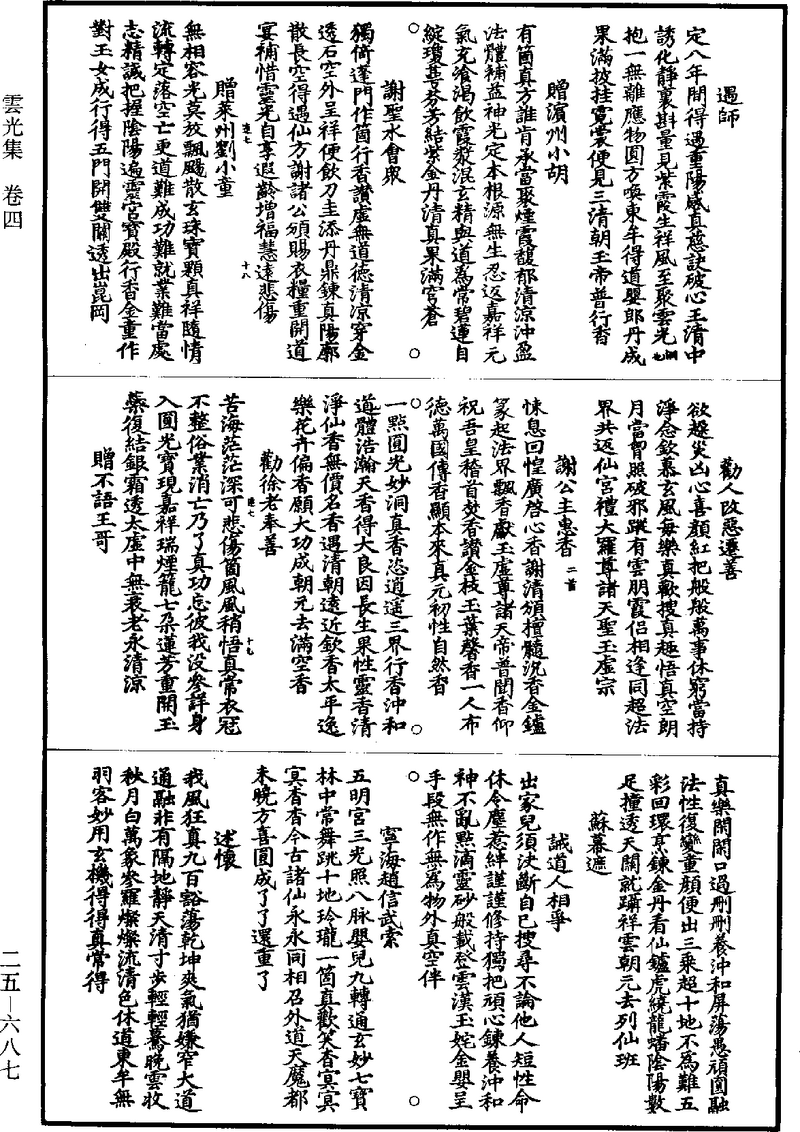 雲光集 卷四
二五—六八七
遇師
定八年間得遇重陽感真慈訣破心王清中
誘化靜裏斟量見紫霞生祥風至聚雲光
抱一無離應物圓方喚東牟得道嬰郎丹成
果滿披挂霓裳便見三清朝玉帝普行香
贈濱州小胡
有箇真方誰肯承當聚煙霞馥郁清涼沖盈
法體補益神光定本根源無生忍返嘉祥元
氣充飡渴飲霞漿混玄精與道為常碧蓮自
綻瓊蕚芬芳結紫金丹清真果滿穹蒼
謝聖水會衆
獨倚蓬門作箇行香讚虛無道德清涼穿金
透石空外呈祥便飲刀圭添丹鼎鍊真陽廓
散長空得遇仙方謝諸公頒賜衣糧重開道
宴補惜靈光自享遐齡增福慧遠悲傷
雲七
十八
贈萊州劉小童
無相容光莫放飄颺散玄珠寶顆真祥隨情
流轉定落空亡更道難成功難就業難當處
志精誠把握陰陽遍靈宮寶殿行香金童作
對玉女成行得五門開雙關透出崑岡
勸人改惡遷善
欲趍災凶心喜顏紅把般般萬事休窮當持
淨念欽慕玄風每樂真歡搜真趣悟真空朗
月當胷照破邪蹤有雲朋霞侶相逢同超法
界共返仙宮禮大羅尊諸天聖玉虛宗
謝公主惠香 二首
悚息回惶廣啓心香謝清頒檀髓沉香金鑪
篆起法界飄香獻玉虛尊諸天帝普聞香仰
祝吾皇稽首焚香讚金枝玉葉馨香一人布
德萬國傳香顯本來真元初性自然香
一點圓光妙洞真香恣逍遥三界行香沖和
道體浩瀚天香得大良因長生果性靈香清
淨仙香無價名香遇清朝遠近欽香太平逸
樂花卉偏香願大功成朝元去滿空香
勸徐老奉善
十九
苦海茫茫深可悲傷箇風風稍悟真常衣冠
不整俗業消亡乃了真功忘彼我没叅詳身
入圓光寶現嘉祥瑞煙籠七朶蓮芳重開玉
蘂復結銀霜透太虛中無衰老永清涼
贈不語王哥
真樂閑閑口過刑刑養沖和屏蕩愚頑圓融
法性復變童顏便出三乘超十地不為難五
彩回環烹鍊金丹看仙鑪虎繞龍蟠陰陽數
足撞透天關就躡祥雲朝元去列仙班
蘇幕遮
誡道人相爭
出家兒須決斷自已搜尋不論他人短性命
休令塵惹絆謹謹修持獨把頑心鍊養沖和
神不亂點滴靈砂般載登雲漢玉姹金嬰呈
手段無作無為物外真空伴
寧海趙信武索
五明宮三光照八脉嬰兒九轉通玄妙七寶
林中常舞跳十地玲瓏一箇真歡笑杳冥冥
冥杳杳今古諸仙永永同相召外道天魔都
未曉方喜圓成了了還重了
述懷
我風狂真九百豁蕩乾坤爽氣猶嫌窄大道
通融非有隔地靜天清寸步輕輕驀晚雲收
秋月白萬象參羅燦燦流清色休道東牟無
羽客妙用玄機得得真常得